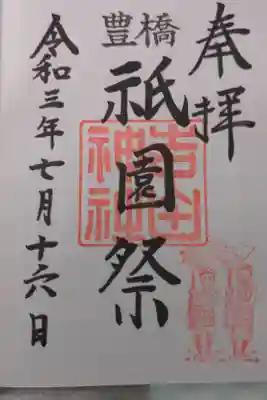 奉拝
豊橋
祇園祭
吉田神社
令和三年七月十六日